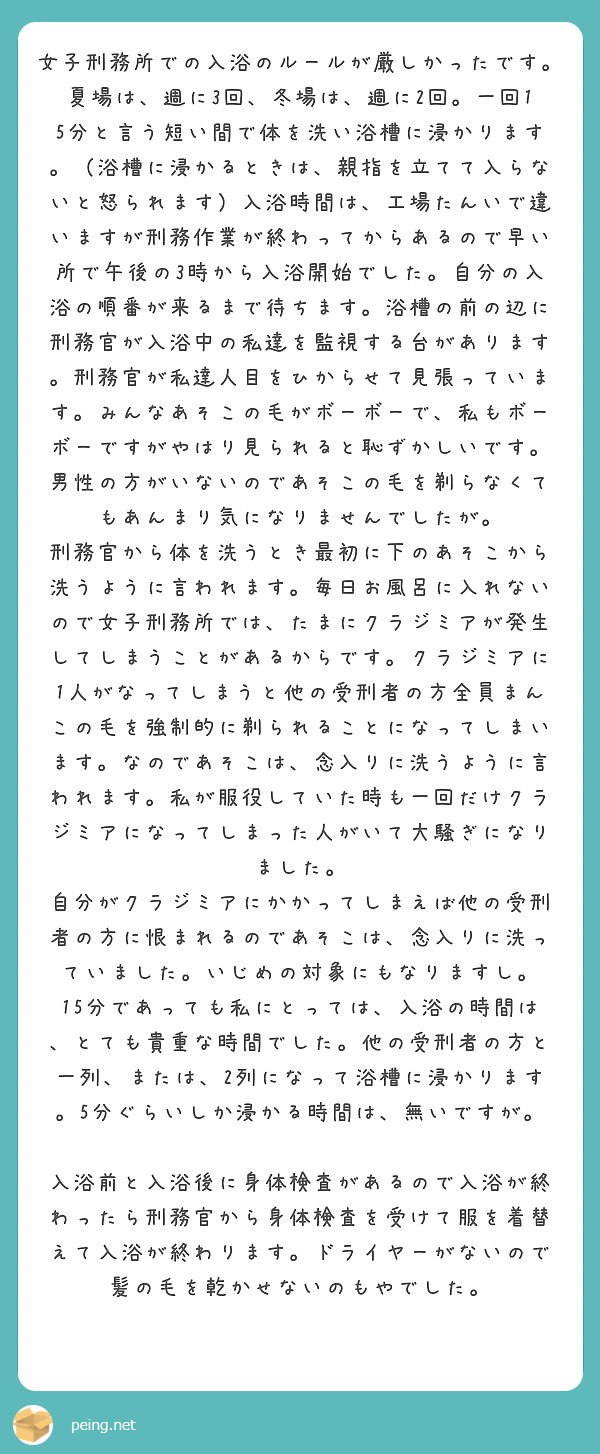 女子刑務所での入浴のルールが厳しかったです。
夏場は、週に3回、冬場は、週に2回。一回1
5分と言う短い間で体を洗い浴槽に浸かります
。（浴槽に浸かるときは、親指を立てて入らな
いと怒られます）入浴時間は、工場たんいで違
いますが刑務作業が終わってからあるので早い
所で午後の3時から入浴開始でした。自分の入
浴の順番が来るまで待ちます。浴槽の前の辺に
刑務官が入浴中の私達を監視する台があります
。刑務官が私達人目をひからせて見張っていま
す。みんなあそこの毛がボーボーで、私もボー
ボーですがやはり見られると恥ずかしいです。
男性の方がいないのであそこの毛を剃らなくて
もあんまり気になりませんでしたが。
刑務官から体を洗うとき最初に下のあそこから
洗うように言われます。毎日お風呂に入れない
ので女子刑務所では、たまにクラジミアが発生
してしまうことがあるからです。クラジミアに
1人がなってしまうと他の受刑者の方全員まん
この毛を強制的に剃られることになってしまい
ます。なのであそこは、念入りに洗うように言
われます。私が服役していた時も一回だけクラ
ジミアになってしまった人がいて大騒ぎになり
ました。
自分がクラジミアにかかってしまえば他の受刑
者の方に恨まれるのであそこは、念入りに洗っ
ていました。いじめの対象にもなりますし。
15分であっても私にとっては、入浴の時間は
、とても貴重な時間でした。他の受刑者の方と
一列、または、2列になって浴槽に浸かります
。5分ぐらいしか浸かる時間は、無いですが。
入浴前と入浴後に身体検査があるので入浴が終
わったら刑務官から身体検査を受けて服を着替
えて入浴が終わります。ドライヤーがないので
髪の毛を乾かせないのもやでした。
peing.net